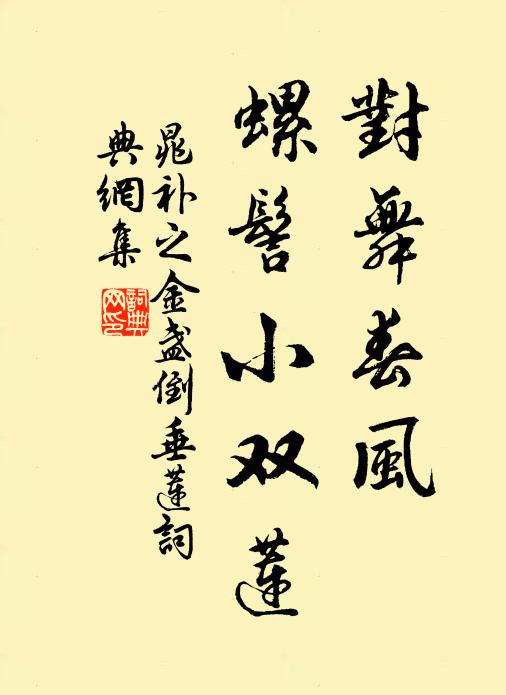 對舞春風
螺髻小双蓮
晁补之金盏倒垂蓮詞
典網集
詞典
网印